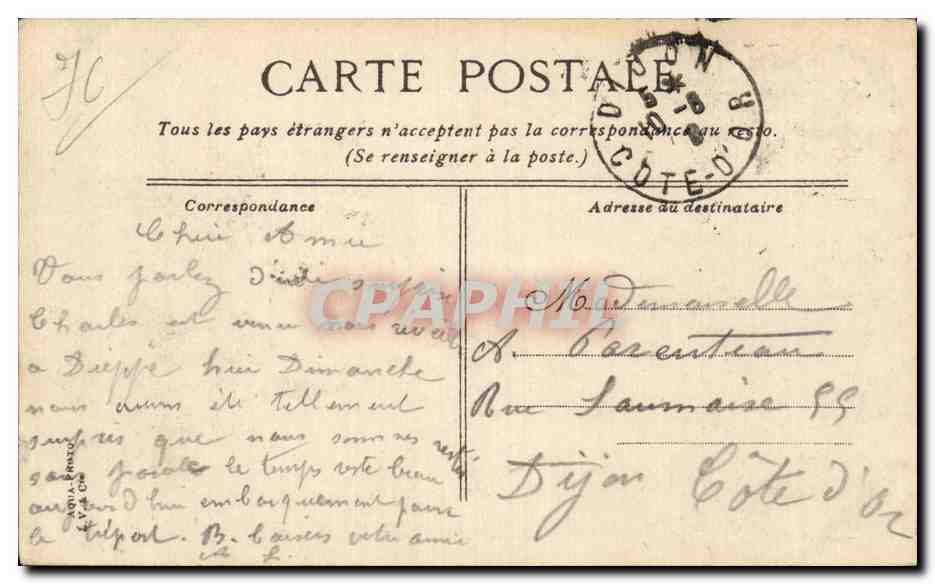 JC
CARTE POSTALE
Tous les pays étrangers n'acceptent pas la correspondance au recto.
(Se renseigner à la poste.)
DIJON
COTE-D'OR
Correspondance
Adresse du destinataire
Chère Amie
Vous parlez d'une surprise
Charles est venu nous
a Dieppe hier Dimanche
nous avons été tellement
surpris que nous sommes restés
sans parole le temps reste beau
aujourd'hui embarquement pour
le tréport. B. baisers votre amie
Mademoiselle
A. Parenteau
Rue Saumaise 55
Dijon Côte d'Or
AQUA-PHOTO
L.V. & Cie
CPAPHIL